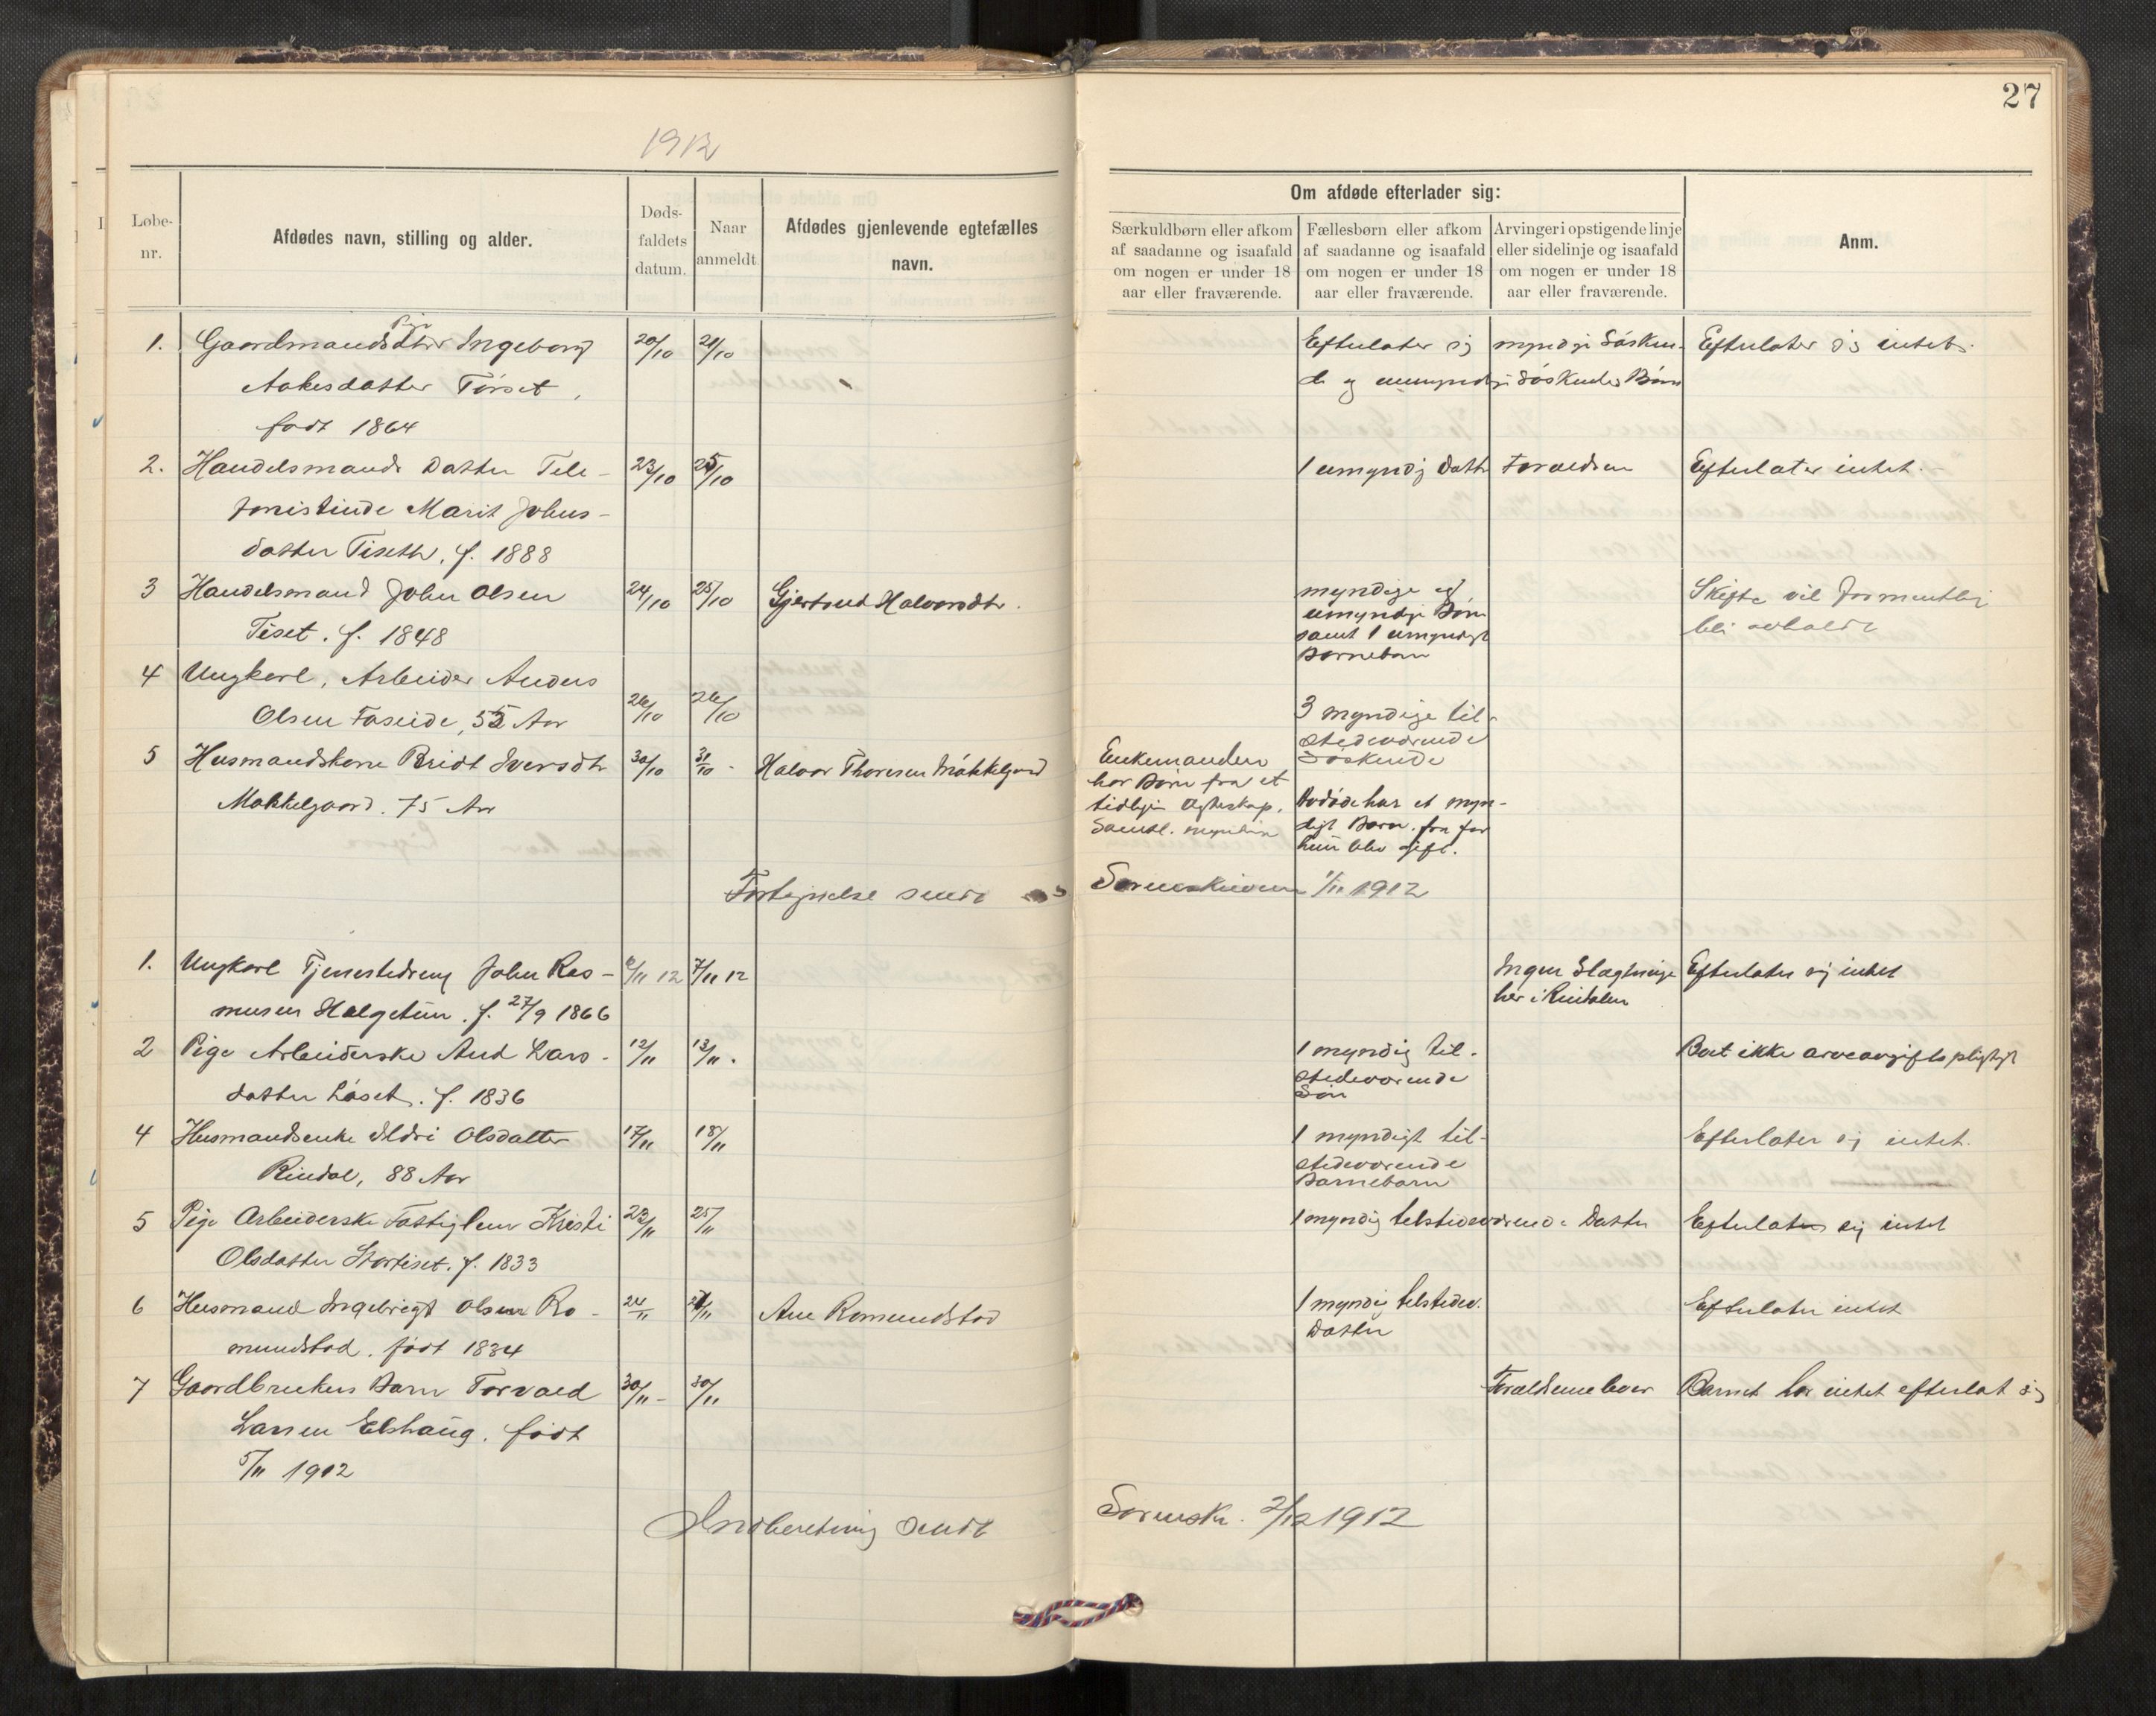 27
1912
Løbe-
nr.
Afdødes navn, stilling og alder.
Døds-
faldets
datum.
Naar
anmeldt
Afdødes gjenlevende egtefælles
navn.
Om afdøde efterlader sig:
Særkuldbørn eller afkom
af saadanne og isaafald
om nogen er under 18
aar eller fraværende.
Fællesbørn eller afkom
af saadanne og isaafald
om nogen er under 18
aar eller fraværende.
Arvinger i opstigende linje
eller sidelinje og isaafald
om nogen er under 18
aar eller fraværende.
Anm.
1. Gaardmandsdtr Pige Ingeborg 20/10 21/10 Efterlater sig myndige Søsken- Efterlater sig intet.
Aakesdatter Tørset, de og umyndige Søskendes Børn
født 1864
2. Handelsmands Datter Tele- 23/10 25/10 1 umyndig Datter Forældre Efterlater intet.
fonistinde Marit Johns-
datter Tiseth, f. 1888
3 Handelsmand John Olsen 24/10 25/10 Gjertrud Halvorsdtr. myndige og Skifte vil formentlig
Tiset. f. 1848 umyndige Børn bli avholdt
samt 1 umyndigt
Barnebarn
4 Ungkarl, Arbeider Anders
Olsen Faseide, 55 Aar 26/10 26/10 3 myndige til-
stedeværende
Søskende
5 Husmandskone Bridt Iversdtr 30/10 31/10 Halvor Thoresen Møkkelgaard Enkemanden
Møkkelgaard. 75 Aar har Børn fra et
tidligere Ægteskap. Avdøde har et myn-
Samtl. myndige digt Barn fra før
hun blev gift.
Fortegnelse sendt Sorenskriveren 1/11 1912
1. Ungkarl Tjenestedreng John Ras- 6/11 12 7/11 12 Ingen Slægtninge Efterlater sig intet
musen Halgetun. f. 27/9 1866 her i Rindalen
2 Pige Arbeiderske And Lars- 12/11 13/11. 1 myndig til- Boet ikke arveavgiftspligtigt
datter Løset. f. 1836 stedeværende
Søn
4 Husmandsenke Ildri Olsdatter 17/11 18/11 1 myndigt til- Efterlater sig intet.
Rindal, 88 Aar stedeværende
Barnebarn
5 Pige Arbeiderske Fattiglem Kristi 23/11 25/11 1 myndig tilstedeværende Datter Efterlater sig intet
Olsdatter Stortiset. f. 1833
6 Husmand Ingebrigt Olsen Ro- 24/11 27/11 Ane Romundstad 1 myndig tilstedev. Efterlater intet
mundstad. født 1834 Datter
7 Gaardbrukers Barn Torvald 30/11 30/11 Forældrene lever Barnet har intet efterlat sig
Larsen Elshaug. født
5/11 1912
Indberetning sendt Sorensk. 2/12 1912